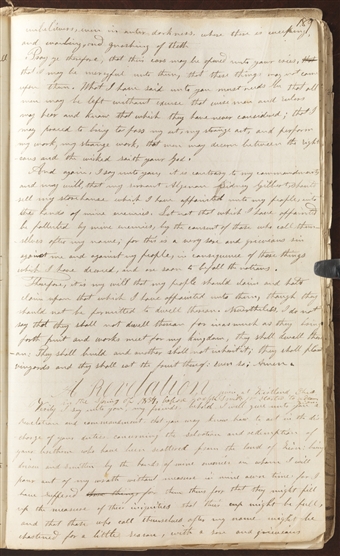 189
unbelievers, even in outer darkness, where there is weeping,
and wandering and gnashing of teeth.
I say ye therefore, that their ears may be opened unto your cries, that
that I may be merciful unto them, that these things may not come
upon them. What I have said unto you must needs be that all
men may be left without excuse that wise men and rulers
may hear and know that which they have never considered; that I
may proceed to bring to pass my act, my strange act, and perform
my work, my strange work, that men may discern between the right
eous and the wicked saith your God.
And again, I say unto you, it is contrary to my commandment
and my will, that my servant Algernon Sidney Gilbert should
sell my storehouse which I have appointed unto my people, into
the hands of mine enemies. Let not that which I have appointed
be polluted by mine enemies, by the consent of those who call them
selves after my name; for this is a very sore and grievous sin
against me and against my people, in consequence of those things
which I have decreed, and are soon to befall the nations.
Therefore, it is my will that my people should claim and hold
claim upon that which I have appointed unto them, though they
should not be permitted to dwell thereon. Nevertheless, I do not
say that they shall not dwell thereon for inasmuch as they bring
forth fruit and works meet for my kingdom, they shall dwell there
on. They shall build and another shall not inherit it; they shall plant
vineyards and they shall eat the fruit thereof: even so; Amen.
A Revelation given at Kirtland Ohio
Verily I say unto you, my friends, behold I will give unto you a
Revelation and commandment, that you may know how to act in the dis
charge of your duties, concerning the salvation and redemption of
your brethren who have been scattered from the land of Zion; being
driven and smitten by the hands of mine enemies on whom I will
pour out my wrath without measure in mine own time; for I
have suffered them thus far that they might fill
up the measure of their iniquities that their cup might be full
and that those who call themselves after my name might be
chastened for a little season, with a sore and grievous